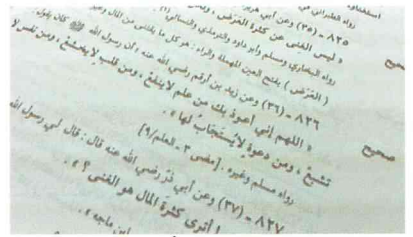 رواه الطبراني في
٨٢٥ - (٣٥) وعن أبي هريرة
« ليس الغنى عن كثرة العَرَض، ولكن
رواه البخاري ومسلم وأبو داود والترمذي والنسائي
(العَرَض) بفتح العين المهملة والراء: هو كل ما يقتنى من المال وغيره
صحيح
٨٢٦ - (٣٦) وعن زيد بن أرقم رضي الله عنه؛ أن رسول الله ﷺ كان يقول:
« اللهم إني أعوذ بك من علم لا ينفع، ومن قلب لا يخشع، ومن نفس لا
تشبع، ومن دعوةٍ لا يُستجابُ لها ».
رواه مسلم وغيره. [مضى ٣ - العلم/٩]
صحيح
٨٢٧ - (٣٧) وعن أبي ذرّ رضي الله عنه قال: قال لي رسول الله
أترى كثرة المال هو الغنى؟ ».
ابن ماجه ».